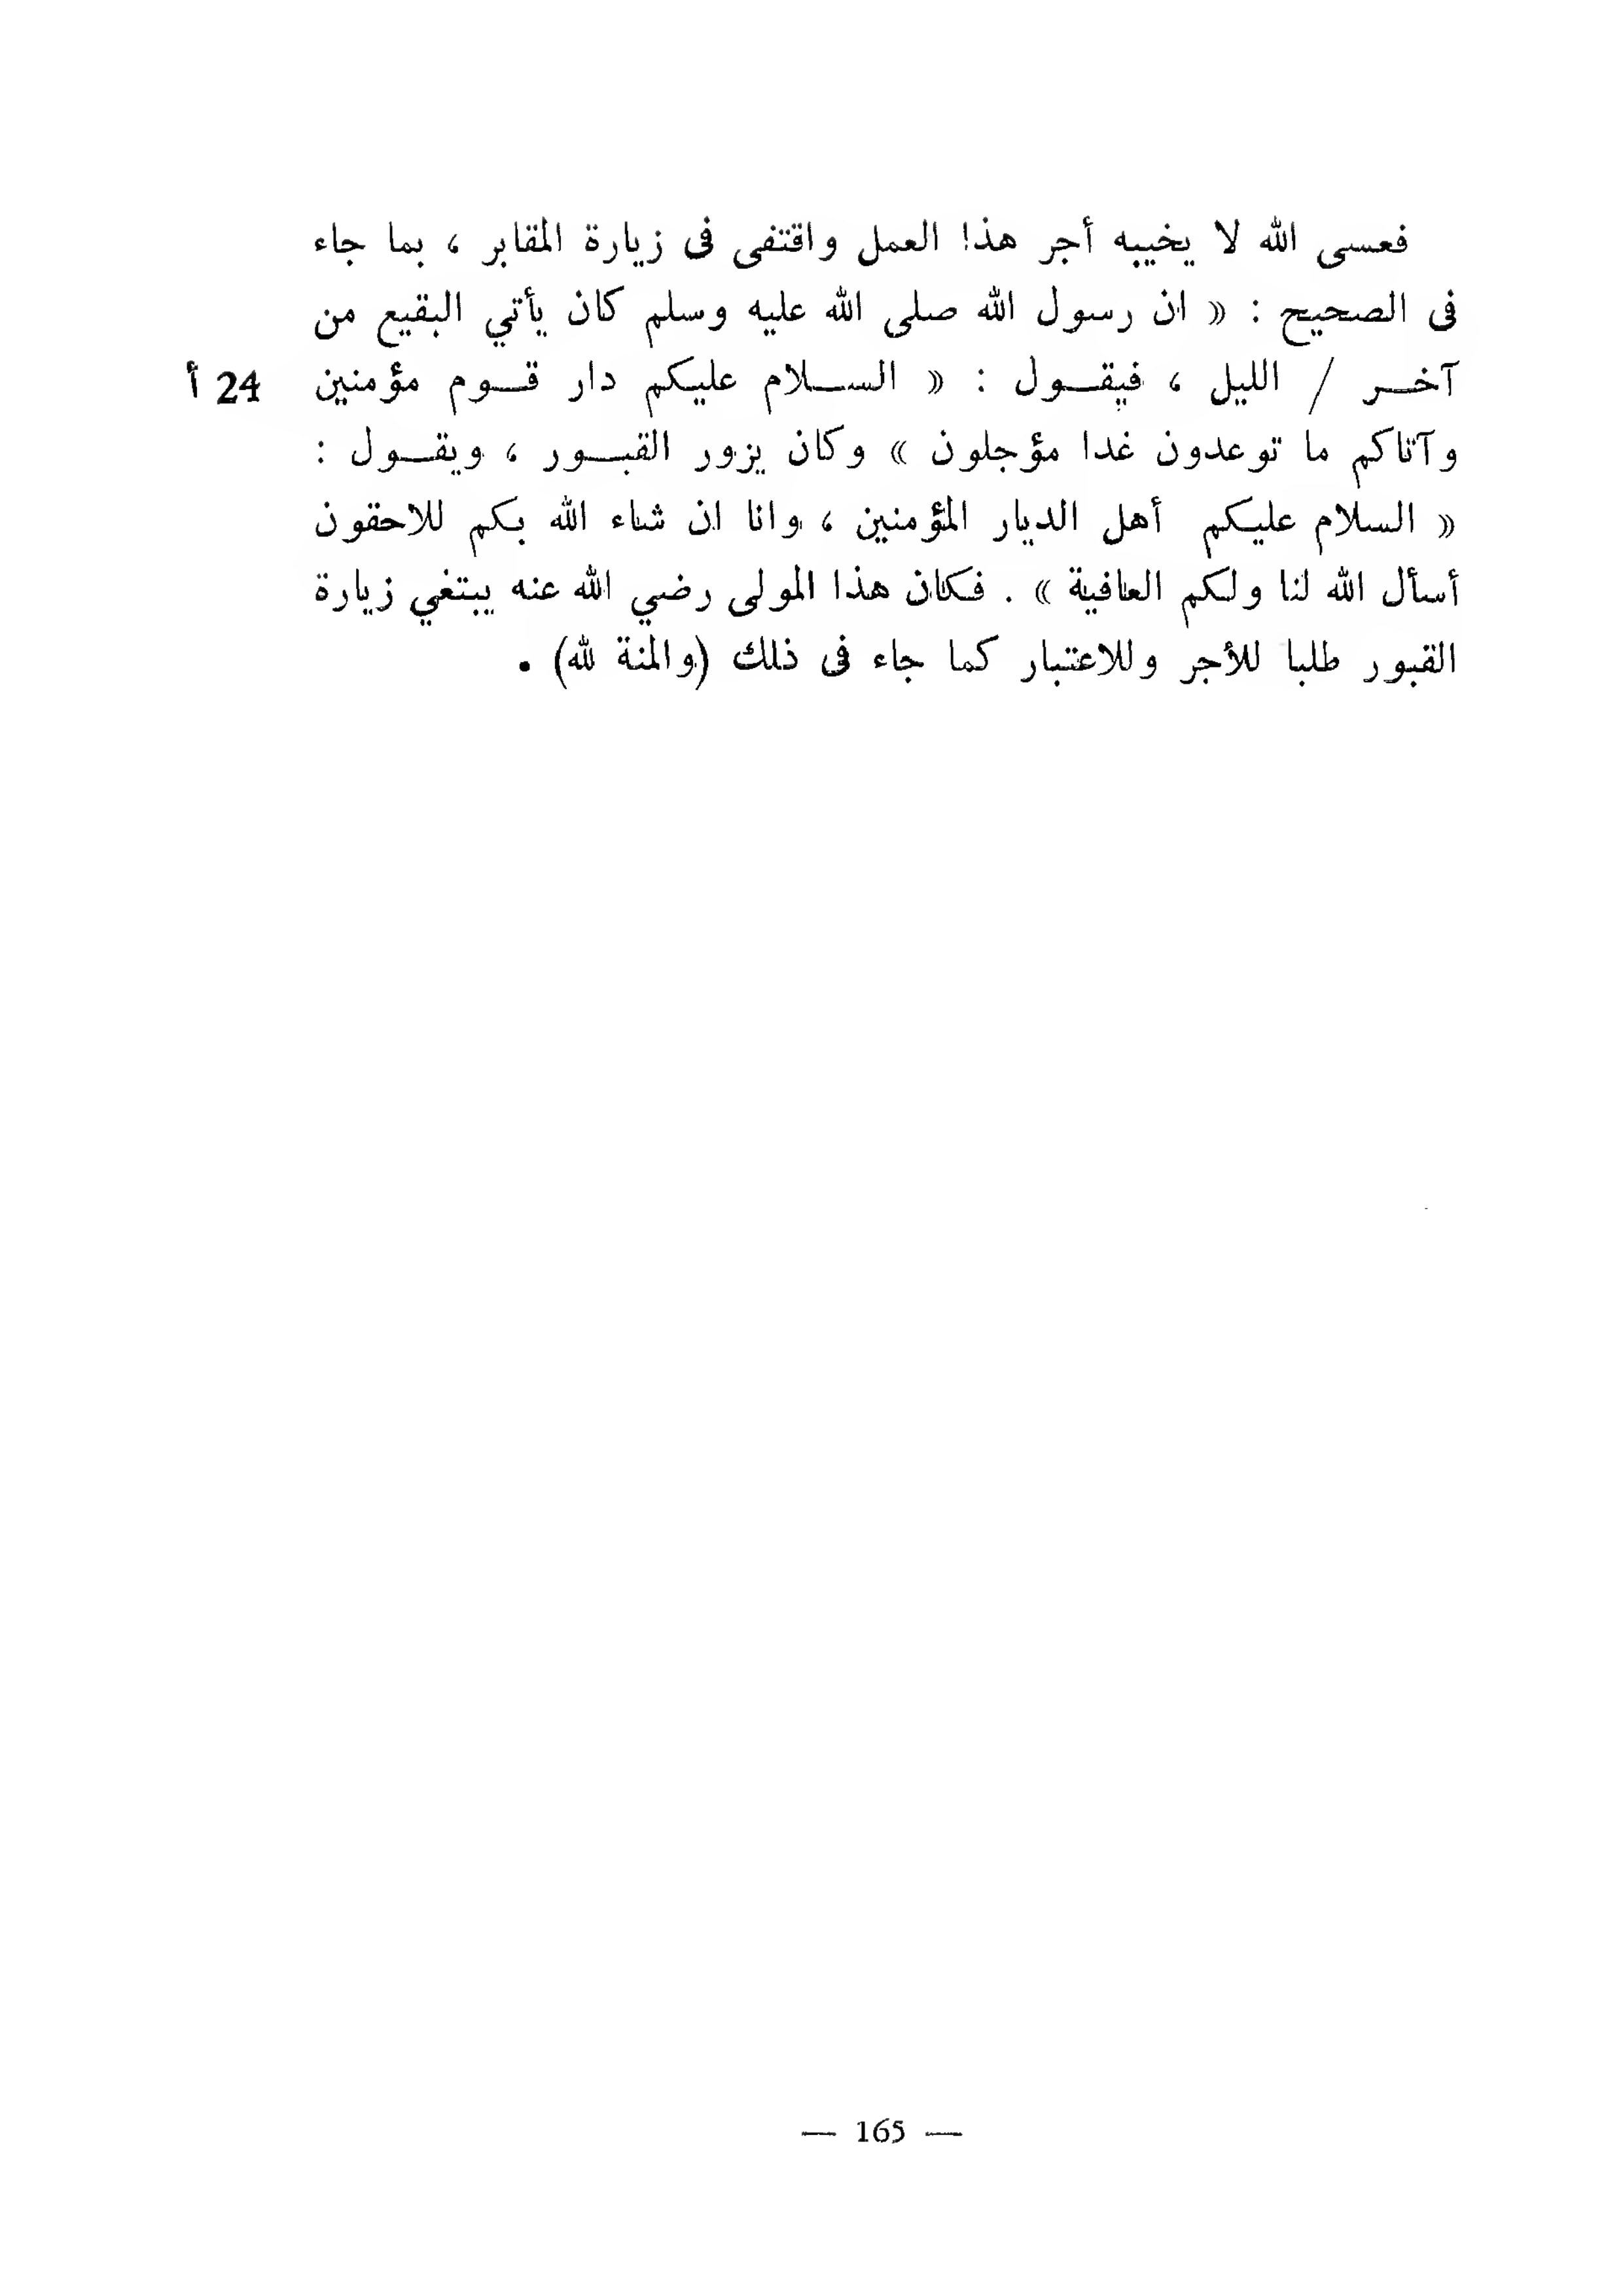 فعسى الله لا يخيبه أجر هذا العمل واقتفى فى زيارة المقابر ، بما جاء
فى الصحيح : « ان رسول الله صلى الله عليه وسلم كان يأتي البقيع من
آخــر / الليل ، فيقــول : « الســلام عليكم دار قــوم مؤمنين 24 أ
وآتاكم ما توعدون غدا مؤجلون » وكان يزور القبــور ، ويقــول :
« السلام عليكم أهل الديار المؤمنين ، وانا ان شاء الله بكم للاحقون
أسأل الله لنا ولكم العافية » . فكان هذا المولى رضي الله عنه يبتغي زيارة
القبور طلبا للأجر وللاعتبار كما جاء فى ذلك (والمنة لله) .
— 165 —